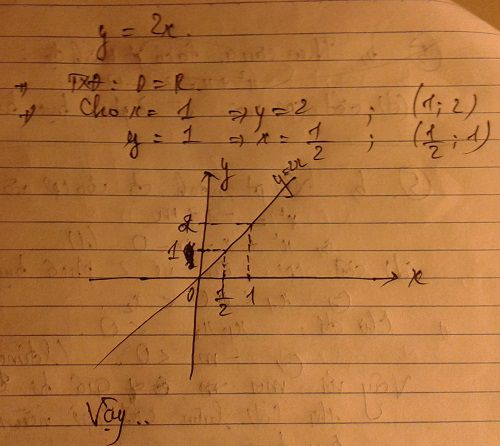 y = 2x.
→ TXĐ: D = R.
→ Cho x = 1 ⇒ y = 2 ; (1; 2)
y = 1 ⇒ x = 1/2 ; (1/2; 1)
y
y=2x
2
1
0
1/2
1
x
Vậy..